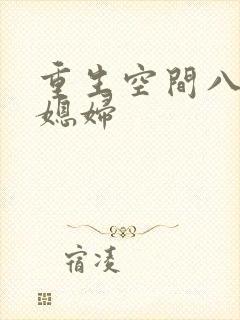 重生空間八
媳婦
宿凌